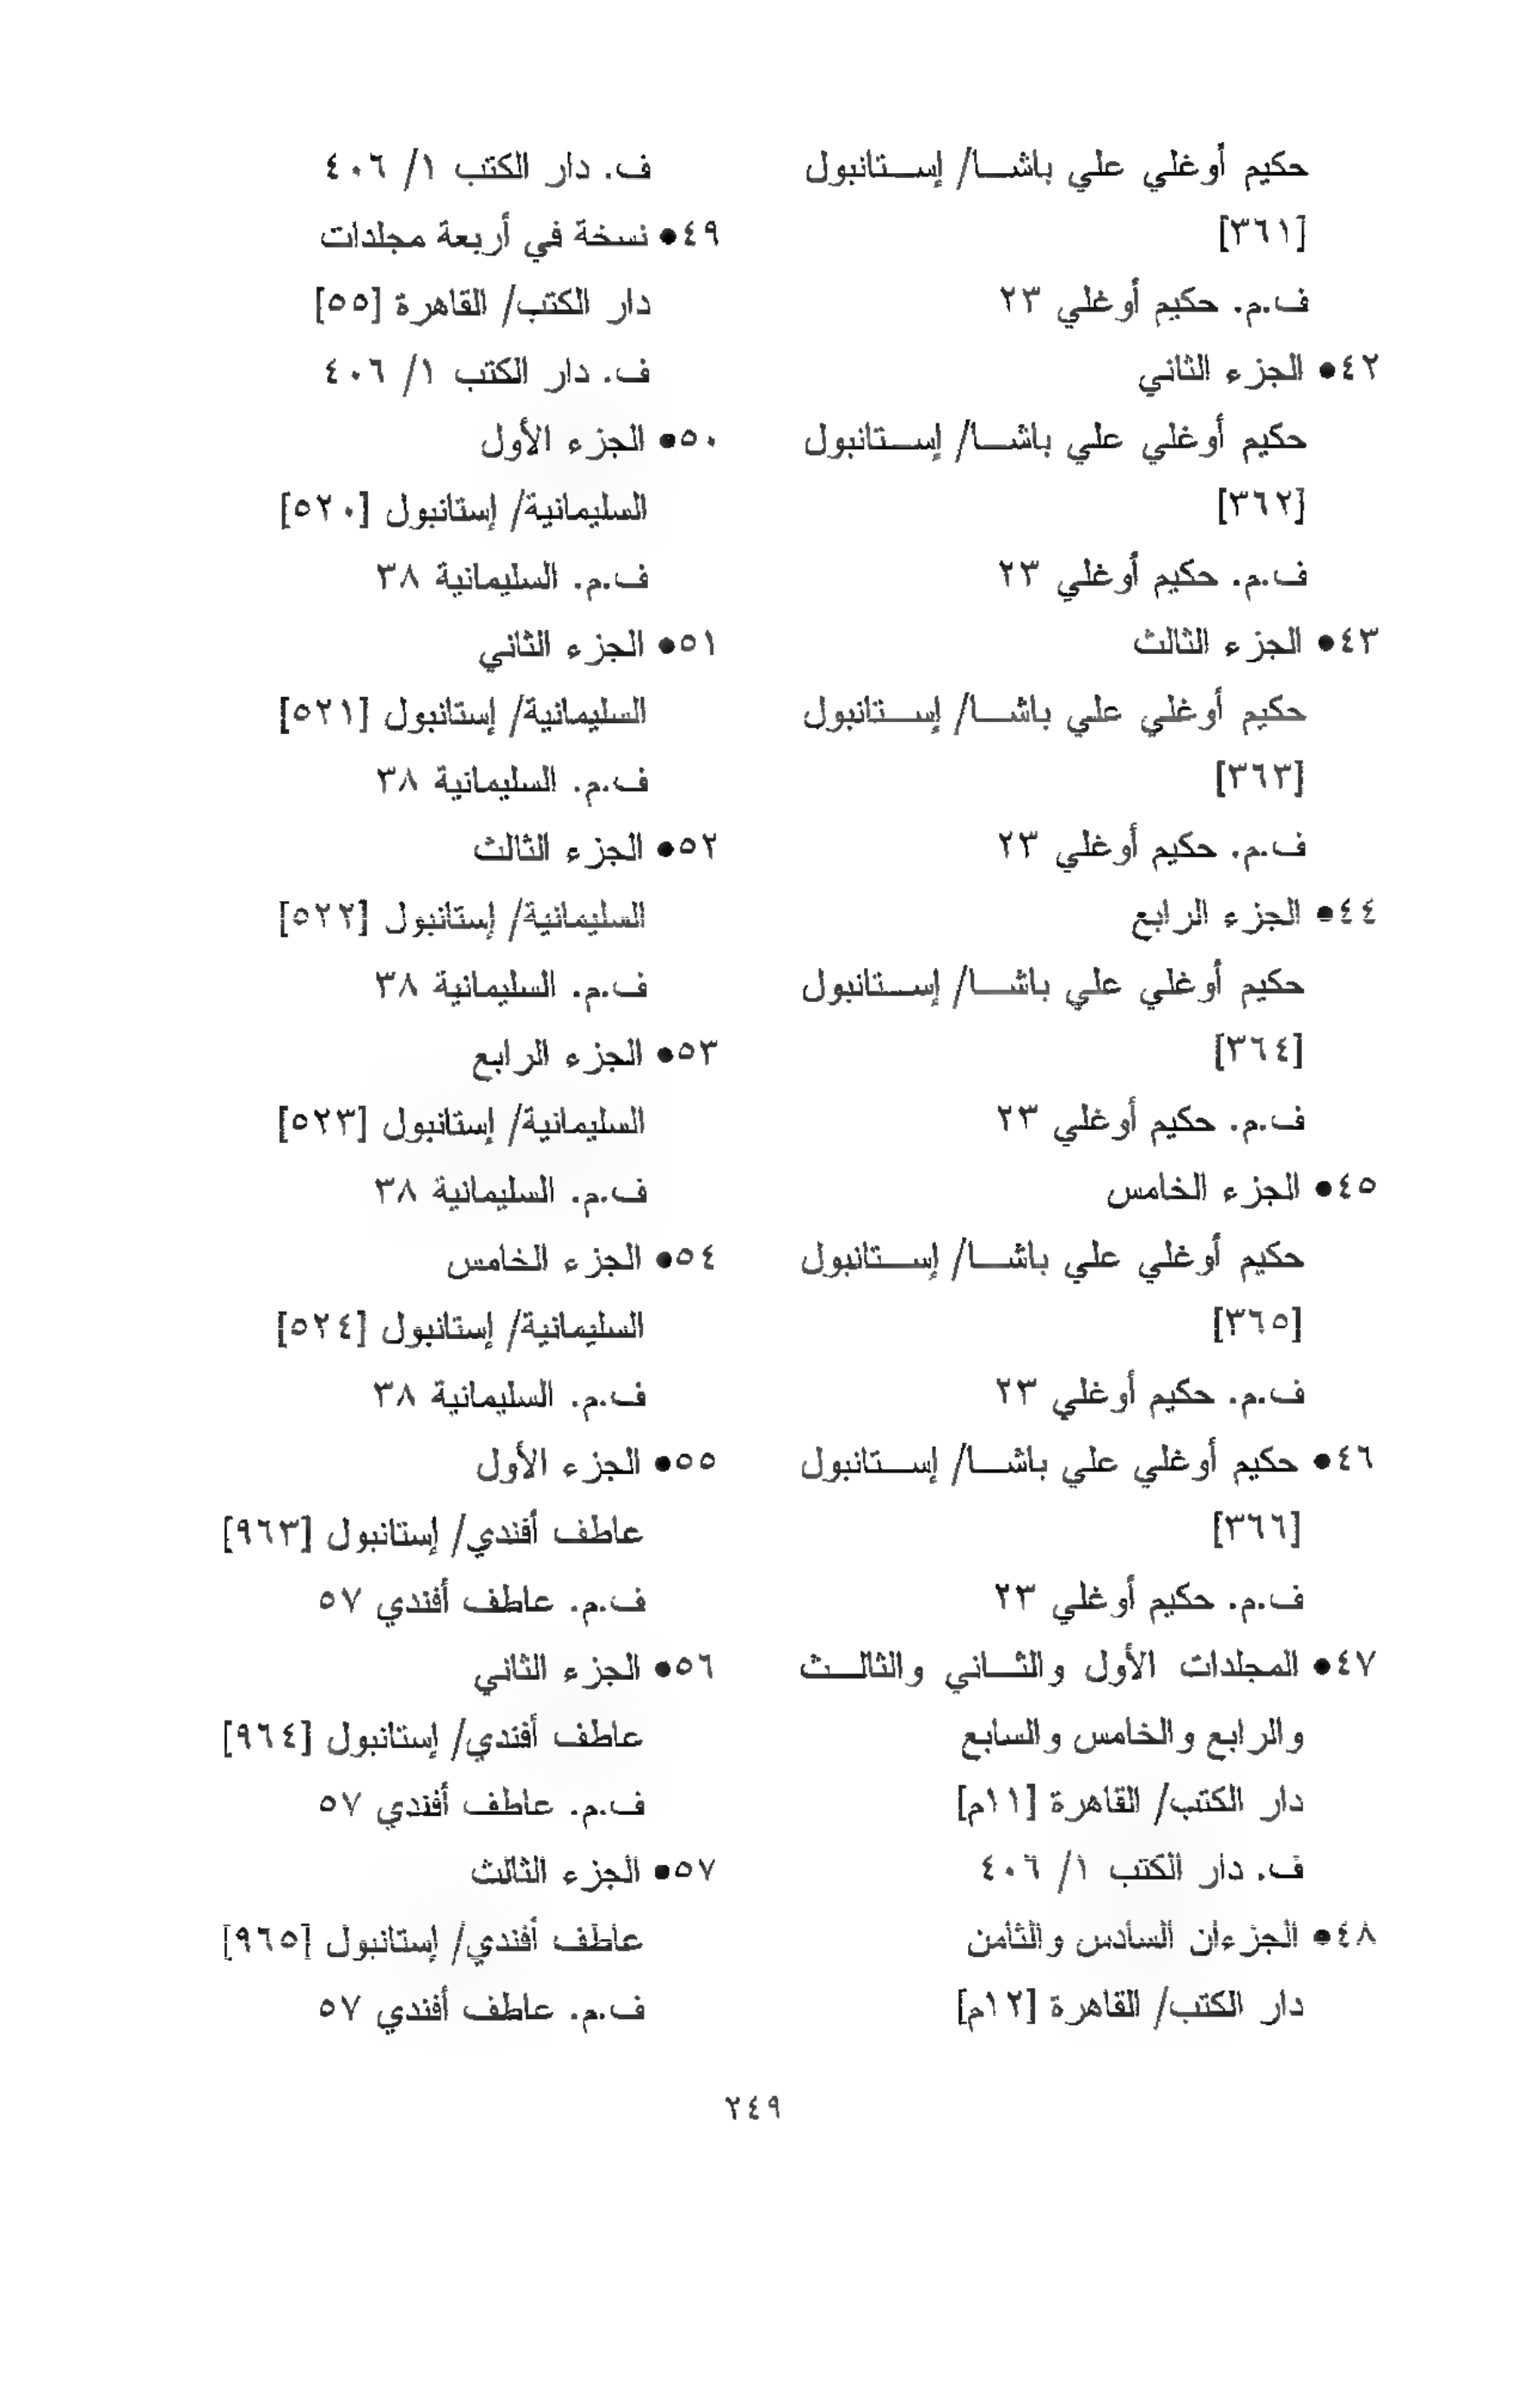 حكيم أوغلي علي باشا/ إستانبول
[٣٦١]
ف.م. حكيم أوغلي ٢٣
٤٢• الجزء الثاني
حكيم أوغلي علي باشا/ إستانبول
[٣٦٢]
ف.م. حكيم أوغلي ٢٣
٤٣• الجزء الثالث
حكيم أوغلي علي باشا/ إستانبول
[٣٦٣]
ف.م. حكيم أوغلي ٢٣
٤٤• الجزء الرابع
حكيم أوغلي علي باشا/ إستانبول
[٣٦٤]
ف.م. حكيم أوغلي ٢٣
٤٥• الجزء الخامس
حكيم أوغلي علي باشا/ إستانبول
[٣٦٥]
ف.م. حكيم أوغلي ٢٣
٤٦• حكيم أوغلي علي باشا/ إستانبول
[٣٦٦]
ف.م. حكيم أوغلي ٢٣
٤٧• المجلدات الأول والثاني والثالث
والرابع والخامس والسابع
دار الكتب/ القاهرة [١١م]
ف. دار الكتب ١/ ٤٠٦
٤٨• الجزءان السادس والثامن
دار الكتب/ القاهرة [١٢م]
ف. دار الكتب ١/ ٤٠٦
٤٩• نسخة في أربعة مجلدات
دار الكتب/ القاهرة [٥٥]
ف. دار الكتب ١/ ٤٠٦
٥٠• الجزء الأول
السليمانية/ إستانبول [٥٢٠]
ف.م. السليمانية ٣٨
٥١• الجزء الثاني
السليمانية/ إستانبول [٥٢١]
ف.م. السليمانية ٣٨
٥٢• الجزء الثالث
السليمانية/ إستانبول [٥٢٢]
ف.م. السليمانية ٣٨
٥٣• الجزء الرابع
السليمانية/ إستانبول [٥٢٣]
ف.م. السليمانية ٣٨
٥٤• الجزء الخامس
السليمانية/ إستانبول [٥٢٤]
ف.م. السليمانية ٣٨
٥٥• الجزء الأول
عاطف أفندي/ إستانبول [٩٦٣]
ف.م. عاطف أفندي ٥٧
٥٦• الجزء الثاني
عاطف أفندي/ إستانبول [٩٦٤]
ف.م. عاطف أفندي ٥٧
٥٧• الجزء الثالث
عاطف أفندي/ إستانبول [٩٦٥]
ف.م. عاطف أفندي ٥٧
٢٤٩